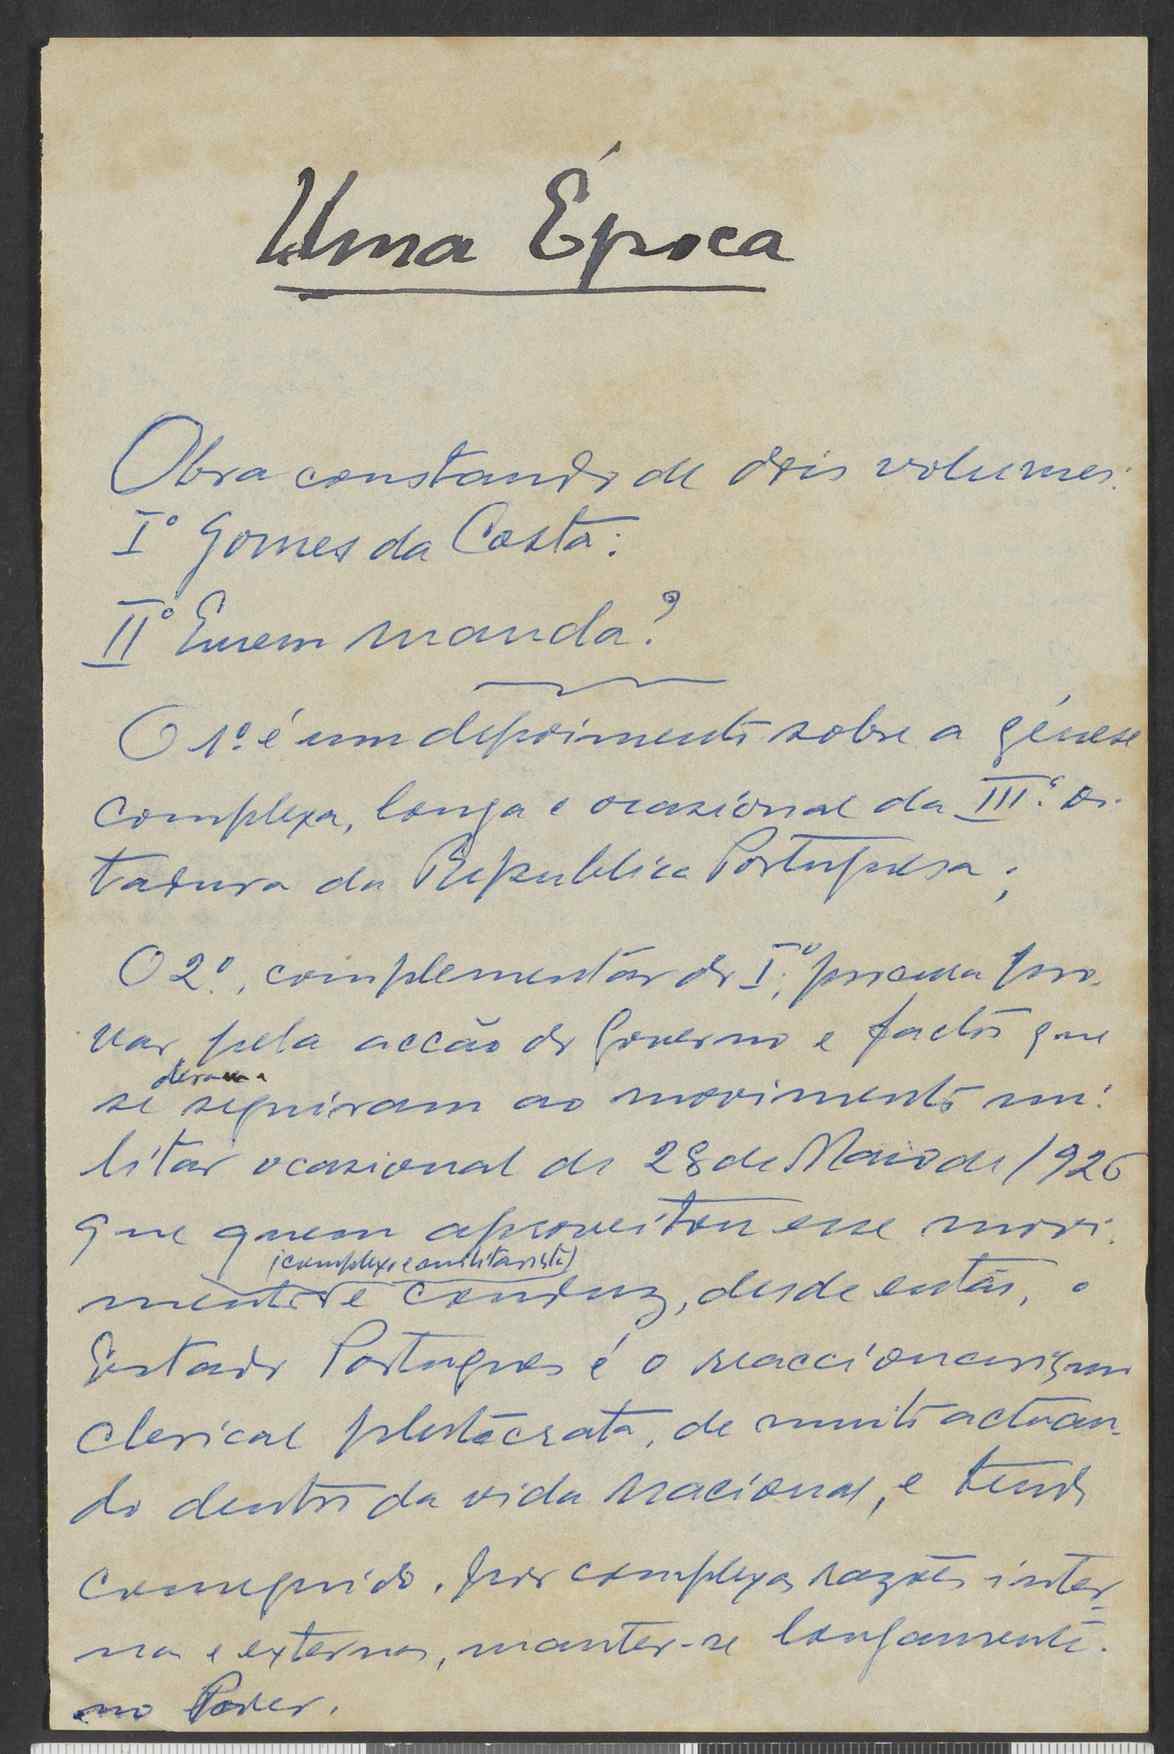 Uma Época
Obra constando de dois volumes:
Iº Gomes da Costa:
IIº Quem manda?
O 1º é um depoimento sobre a génese
complexa, longa e ocasional da IIIª Di-
tadura da Republica Portuguesa;
O 2º, complementar do Iº, procura pro-
var, pela acção do Governo e factos que
se seguiram ao movimento mi-
litar ocasional de 28 de Maio de 1926
que quem aproveitou esse movi-
(complexo e militarista)
mento e conduz, desde então, o
Estado Portugues é o reaccionarismo
clerical plutocrata, de muito actuan-
do dentro da vida nacional, e tendo
conseguido, por complexas razões inter-
nas e externas, manter-se longamente
no Poder.